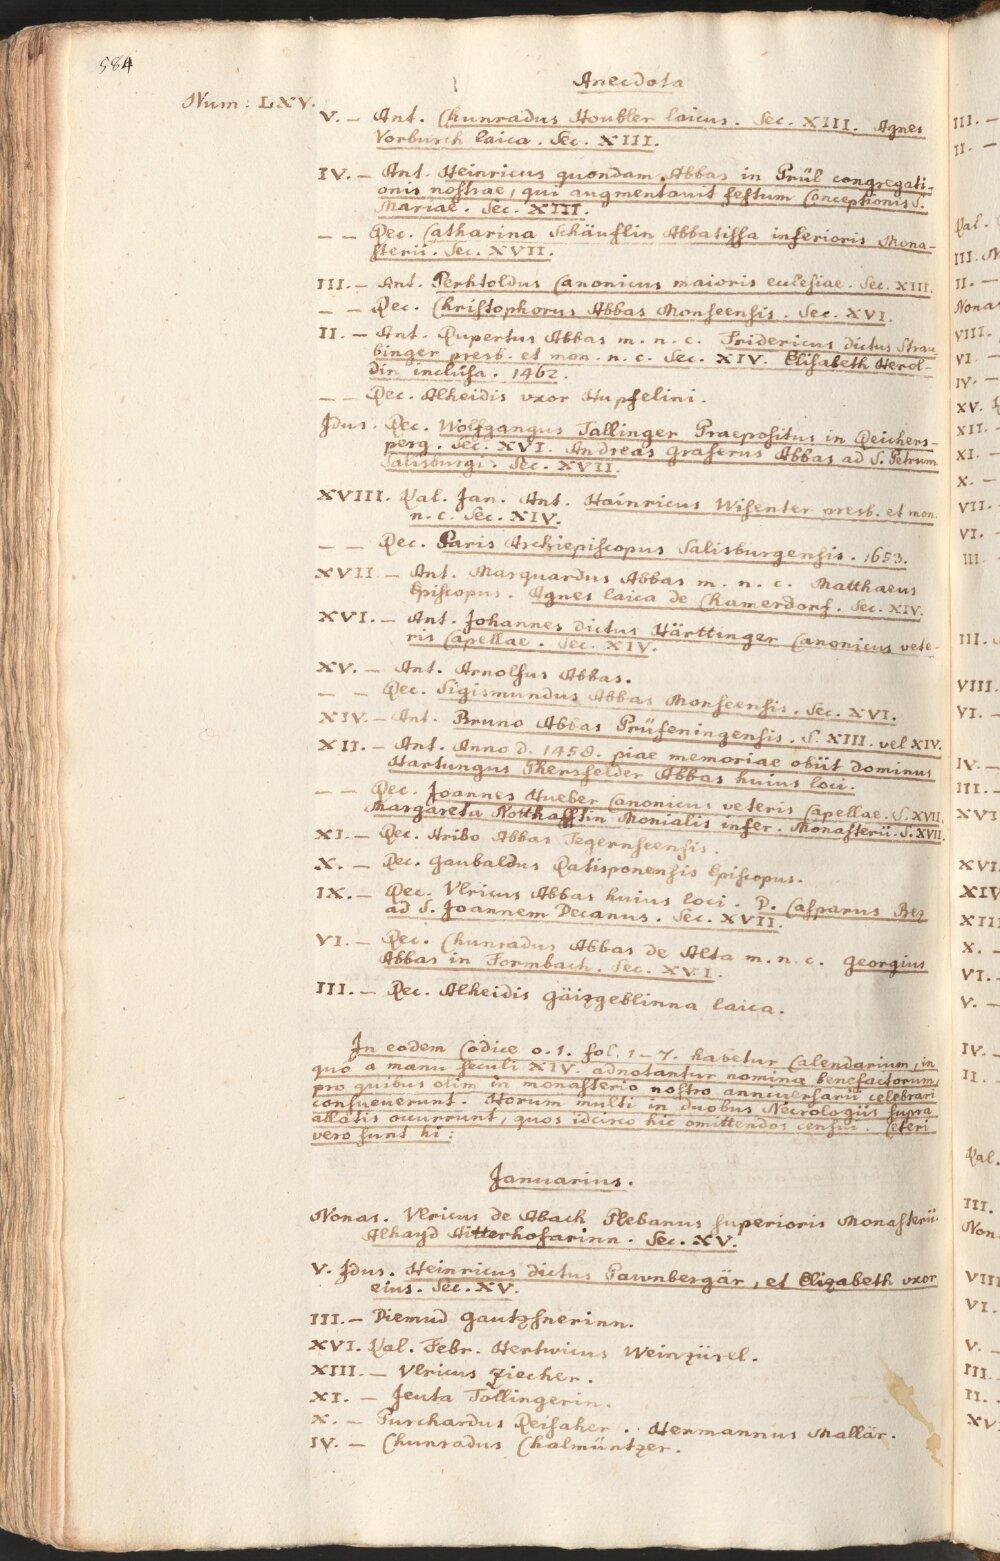 584
Anecdota
Num: LXV.
V. — Ant. Chunradus Houbler laicus. Sec. XIII. Agnes
Vorburch laica. Sec. XIII.
IV. — Ant. Heinricus quondam Abbas in Prül congregati-
onis nostrae, qui augmentavit festum Conceptionis S.
Mariae. Sec. XIII.
— — Rec. Catharina Schäuflin Abbatissa inferioris Mona-
sterii. Sec. XVII.
III. — Ant. Perhtoldus Canonicus maioris eclesiae. Sec. XIII.
— — Rec. Christophorus Abbas Monseensis. Sec. XVI.
II. — Ant. Rupertus Abbas m. n. c. Fridericus dictus Strau-
binger presb. et mon. n. c. Sec. XIV. Elisabeth Herol-
din inclusa. 1462.
— — Rec. Alheidis vxor Hupfelini.
Idus. Rec. Wolfgangus Tallinger Praepositus in Reichers-
perg. Sec. XVI. Andreas Graserus Abbas ad S. Petrum
Salisburgi. Sec. XVII.
XVIII. Kal. Jan. Ant. Hainricus Wisenter presb. et mon.
n. c. Sec. XIV.
— — Rec. Paris Archiepiscopus Salisburgensis. 1653.
XVII — Ant. Marquardus Abbas m. n. c. Matthaeus
Episcopus. Agnes laica de Chamerdorf. Sec. XIV.
XVI. — Ant. Johannes dictus Härttinger Canonicus vete-
ris Capellae. Sec. XIV.
XV. — Ant. Arnolfus Abbas.
— — Rec. Sigismundus Abbas Monseensis. Sec. XVI.
XIV. — Ant. Bruno Abbas Prüfeningensis. S. XIII. vel XIV.
XII. — Ant. Anno d. 1458. piae memoriae obiit dominus
Hartungus Phersfelder Abbas huius loci.
— — Rec. Joannes Hueber Canonicus veteris Capellae. S. XVII.
Margareta Notthafftin Monialis infer. Monasterii. S. XVII.
XI. — Rec. Aribo Abbas Tegernseensis.
X. — Rec. Gaubaldus Ratisponensis Episcopus.
IX. — Rec. Vlricus Abbas huius loci. D. Casparus Bez
ad S. Joannem Decanus. Sec. XVII.
VI. — Rec. Chunradus Abbas de Alta m. n. c. Georgius
Abbas in Formbach. Sec. XVI.
III. — Rec. Alheidis Gäizgeblinna laica.
In eodem Codice o. 1. fol. 1–7. habetur Calendarium, in
quo a manu seculi XIV. adnotantur nomina benefactorum,
pro quibus olim in monasterio nostro anniversarii celebrari
consueverunt. Horum multi in duobus Necrologiis supra
allatis occurrunt, quos idcirco hic omittendos censui. Ceteri
vero sunt hi:
Januarius.
Nonas. Vlricus de Abach Plebanus superioris Monasterii.
Alhayd Hitterhofarinn. Sec. XV.
V. Idus. Heinricus dictus Pawnbergär, et Elizabeth vxor
eius. Sec. XV.
III. — Diemud Gautzhnerinn.
XVI. Kal. Febr. Hertwicus Weinzürel.
XIII. — Vlricus Ziecher.
XI. — Jeuta Töllingerin.
X. — Purchardus Reisaher. Hermannus Mallär.
IV. — Chunradus Chalmüntzer.